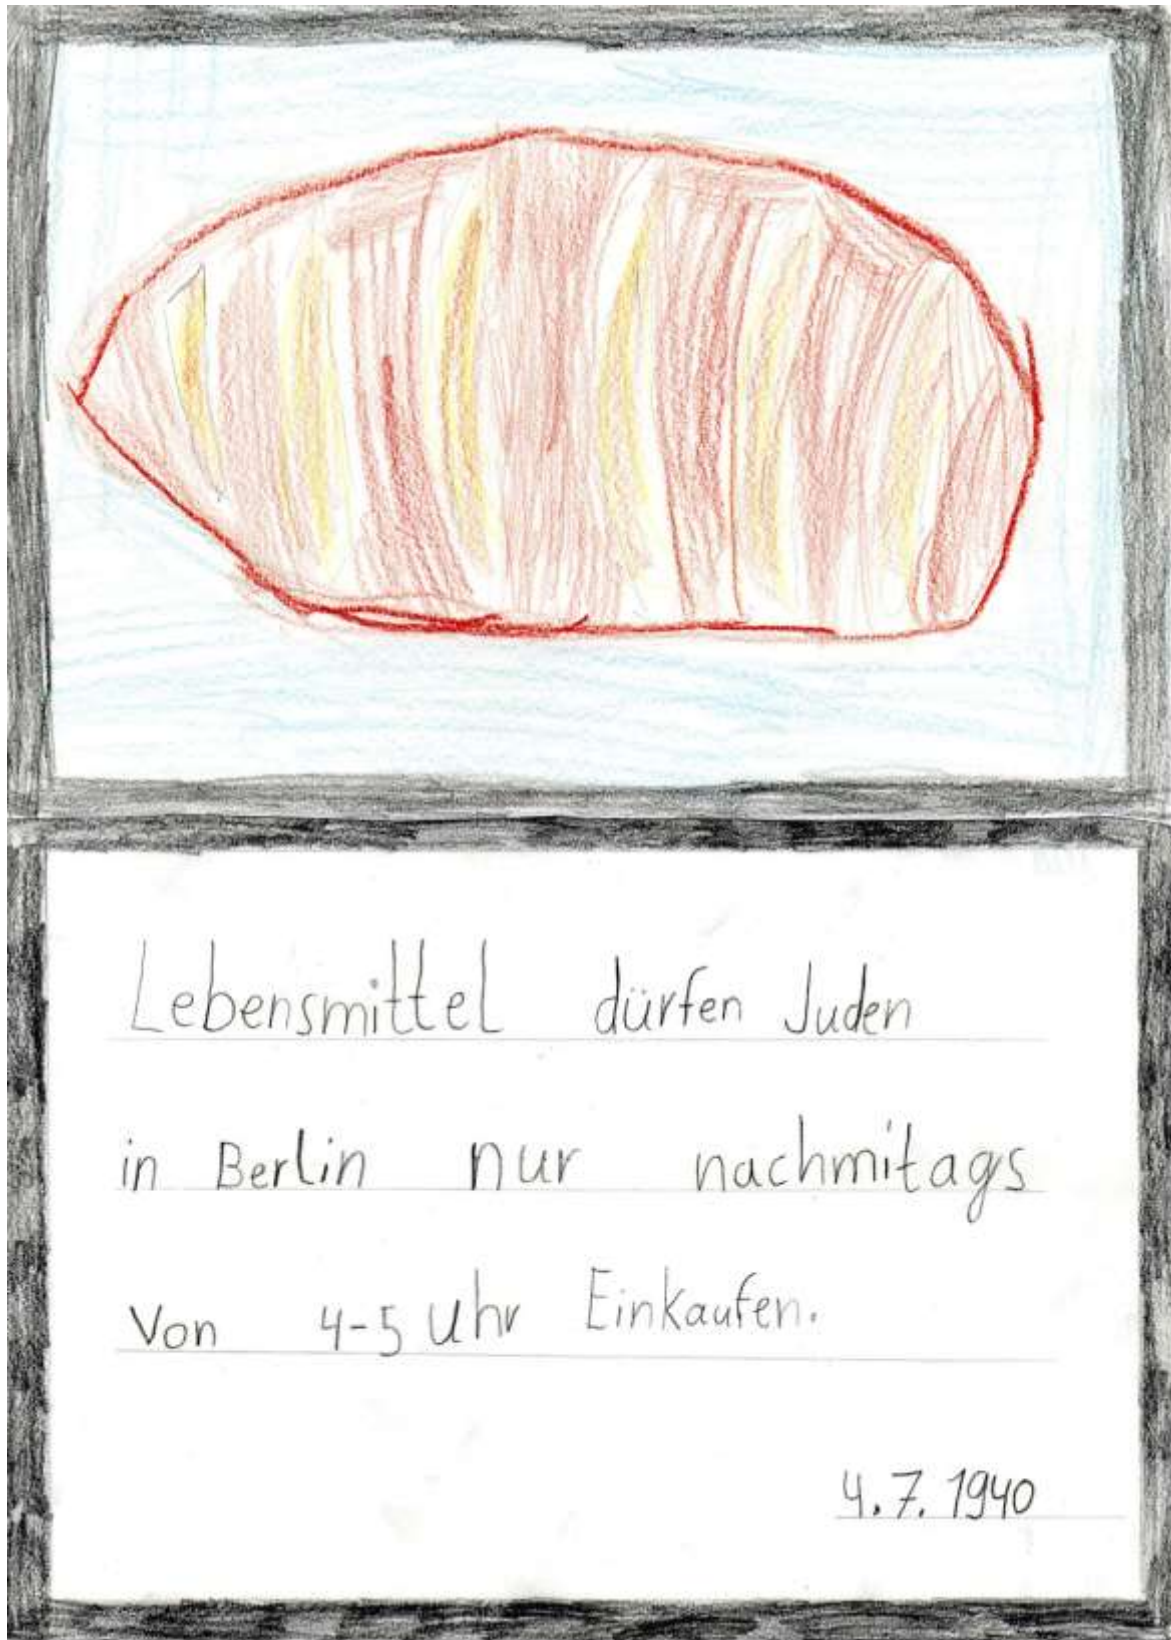 Lebensmittel dürfen Juden
in Berlin nur nachmitags
Von 4-5 Uhr Einkaufen.
4.7.1940